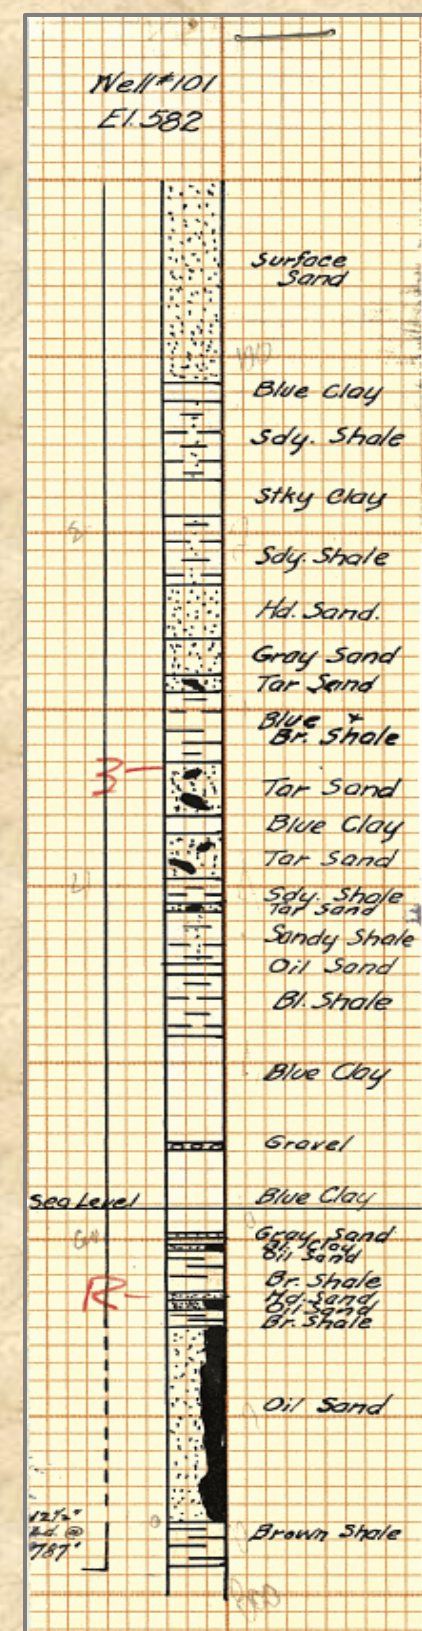 Well #101
El. 582
Surface
Sand
Blue Clay
Sdy. Shale
Stky Clay
Sdy. Shale
Hd. Sand.
Gray Sand
Tar Sand
Blue &
Br. Shale
3
Tar Sand
Blue Clay
Tar Sand
Sdy. Shale
Tar Sand
Sandy Shale
Oil Sand
Bl. Shale
Blue Clay
Gravel
Sea Level
Blue Clay
Gray Sand
Bl. Clay
Oil Sand
Br. Shale
R
Hd. Sand
Oil Sand
Br. Shale
Oil Sand
12½"
@
787'
Brown Shale